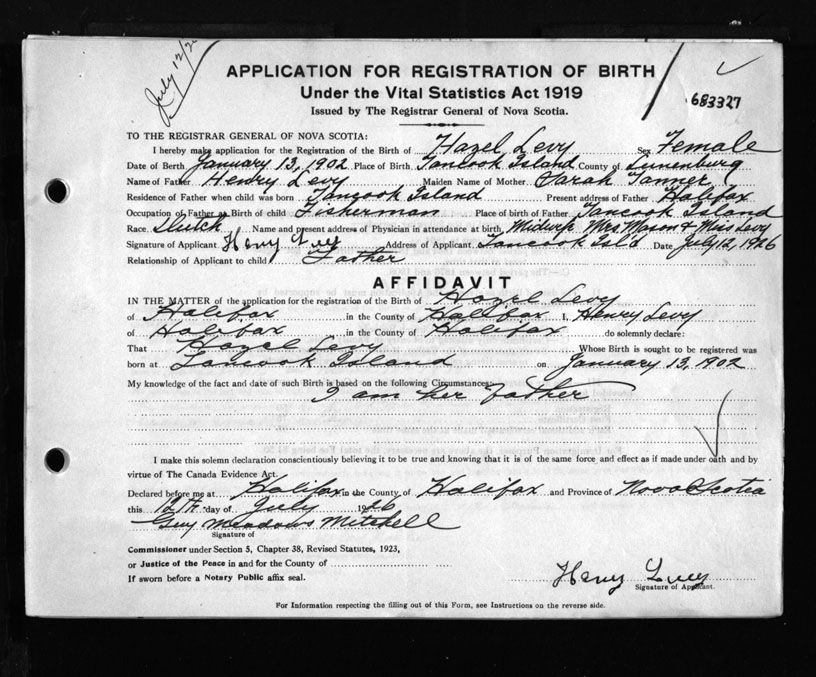 July 12/26
APPLICATION FOR REGISTRATION OF BIRTH
Under the Vital Statistics Act 1919
Issued by The Registrar General of Nova Scotia.
683327
TO THE REGISTRAR GENERAL OF NOVA SCOTIA:
I hereby make application for the Registration of the Birth of Hazel Levy Sex Female
Date of Berth January 13, 1902 Place of Birth Tancook Island County of Lunenburg
Name of Father Henry Levy Maiden Name of Mother Sarah Tanner
Residence of Father when child was born Tancook Island Present address of Father Halifax
Occupation of Father at Birth of child Fisherman Place of birth of Father Tancook Island
Race Dutch Name and present address of Physician in attendance at birth Midwife Mrs Mason & Miss Levy
Signature of Applicant Henry Levy Address of Applicant Tancook Isl'd Date July 12, 1926
Relationship of Applicant to child Father
AFFIDAVIT
IN THE MATTER of the application for the registration of the Birth of Hazel Levy
of Halifax in the County of Halifax I, Henry Levy
of Halifax in the County of Halifax do solemnly declare:
That Hazel Levy Whose Birth is sought to be registered was
born at Tancook Island on January 13, 1902
My knowledge of the fact and date of such Birth is based on the following Circumstances:
I am her father
I make this solemn declaration conscientiously believing it to be true and knowing that it is of the same force and effect as if made under oath and by
virtue of The Canada Evidence Act.
Declared before me at Halifax in the County of Halifax and Province of Nova Scotia
this 12th day of July 1926
Guy Meadows Mitchell
Signature of
Commissioner under Section 5, Chapter 38, Revised Statutes, 1923,
or Justice of the Peace in and for the County of
If sworn before a Notary Public affix seal.
Henry Levy
Signature of Applicant.
For Information respecting the filling out of this Form, see Instructions on the reverse side.